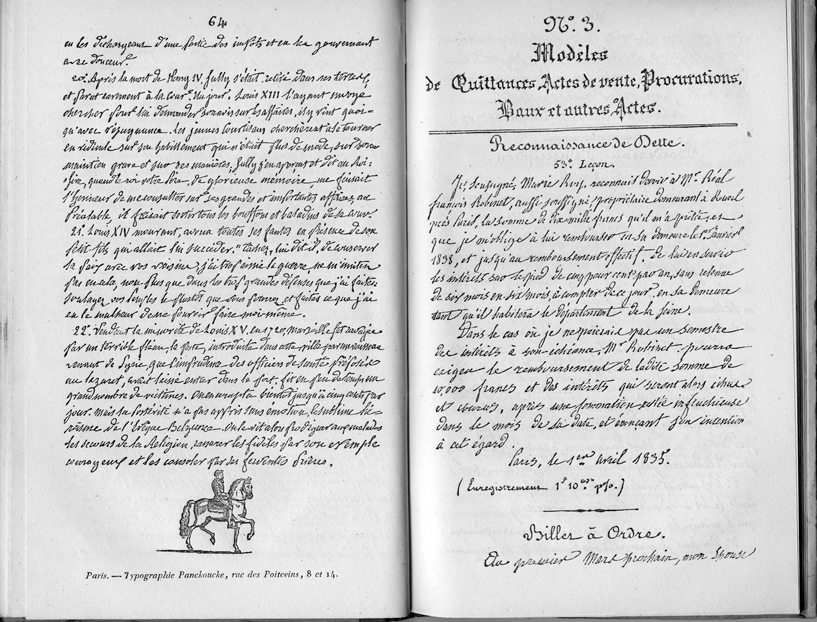 64
en les déchargeant d'une partie des impôts et en les gouvernant
avec douceur.
20e. Après la mort de Henry IV, Sully s'était retiré dans ses terres,
et parut rarement à la cour. Un jour, Louis XIII l'ayant envoyé
chercher pour lui demander son avis sur les affaires, il y vint quoi-
qu'avec répugnance. Les jeunes courtisans cherchèrent à le tourner
en ridicule sur son habillement qui n'était plus de mode, sur son
maintien grave et sur ses manières, Sully s'en aperçut et dit au Roi:
Sire, quand le roi votre Père, de glorieuse mémoire, me faisait
l'honneur de me consulter sur ses grandes et importantes affaires, au
Préalable, il faisait sortir tous les bouffons et baladins de la cour.
21. Louis XIV mourant, avoua toutes ses fautes en présence de son
petit fils qui allait lui succéder. Tâchez, lui dit-il, de conserver
la paix avec vos voisins; j'ai trop aimé la guerre, ne m'imitez
pas en cela, non plus que dans les trop grandes dépenses que j'ai faites.
Soulagez vos peuples le plustôt que vous pourrez et faites ce que j'ai
eu le malheur de ne pouvoir faire moi-même.
22e. Pendant la minorité de Louis XV, en 1720, Marseille fut ravagée
par un terrible fléau, la peste, introduite dans cette ville par un vaisseau
venant de Syrie, que l'imprudence des officiers de santé préposés
au lazaret, avait laissé entrer dans le port, fit en peu de temps un
grand nombre de victimes. On en compta bientôt jusqu'à cinq cents par
jour, mais la postérité n'a pas appris sans émotion, le sublime dé-
vouement de l'Evêque Belzunce. On le vit alors prodiguer aux malades
les secours de la Religion, rassurer les fidèles par son exemple
courageux et les consoler par ses ferventes prières.
Paris. — Typographie Panckoucke, rue des Poitevins, 8 et 14.
No. 3.
Modèles
de Quittances, Actes de vente, Procurations,
Baux et autres Actes.
Reconnaissance de Dette.
53e. Leçon.
Je, soussigné, Marie Roy, reconnait devoir à Mr. Réal
françois Robinet, aussi soussigné, propriétaire demeurant à Rueil
près Paris, la somme de dix mille francs qu'il m'a prêtée, et
que je m'oblige à lui rembourser en sa demeure le 1er. Janvier
1838, et jusqu'au remboursement effectif, de lui en servir
les intérêts sur le pied de cinq pour cent par an, sans retenue
de six mois en six mois, à compter de ce jour, en sa Demeure
tant qu'il habitera le Département de la Seine.
Dans le cas où je ne paierais pas un semestre
des intérêts à son échéance, Mr. Robinet, pourra
exiger le remboursement de ladite somme de
10,000 francs et des intérêts qui seront alors échus
et courus, après une sommation restée infructueuse
dans le mois de sa date, et énonçant son intention
à cet égard.
Paris, le 1er avril 1835.
(Enregistrement 1f. 10c. p%.)
Billet à Ordre.
Au premier Mars prochain, mon Epouse